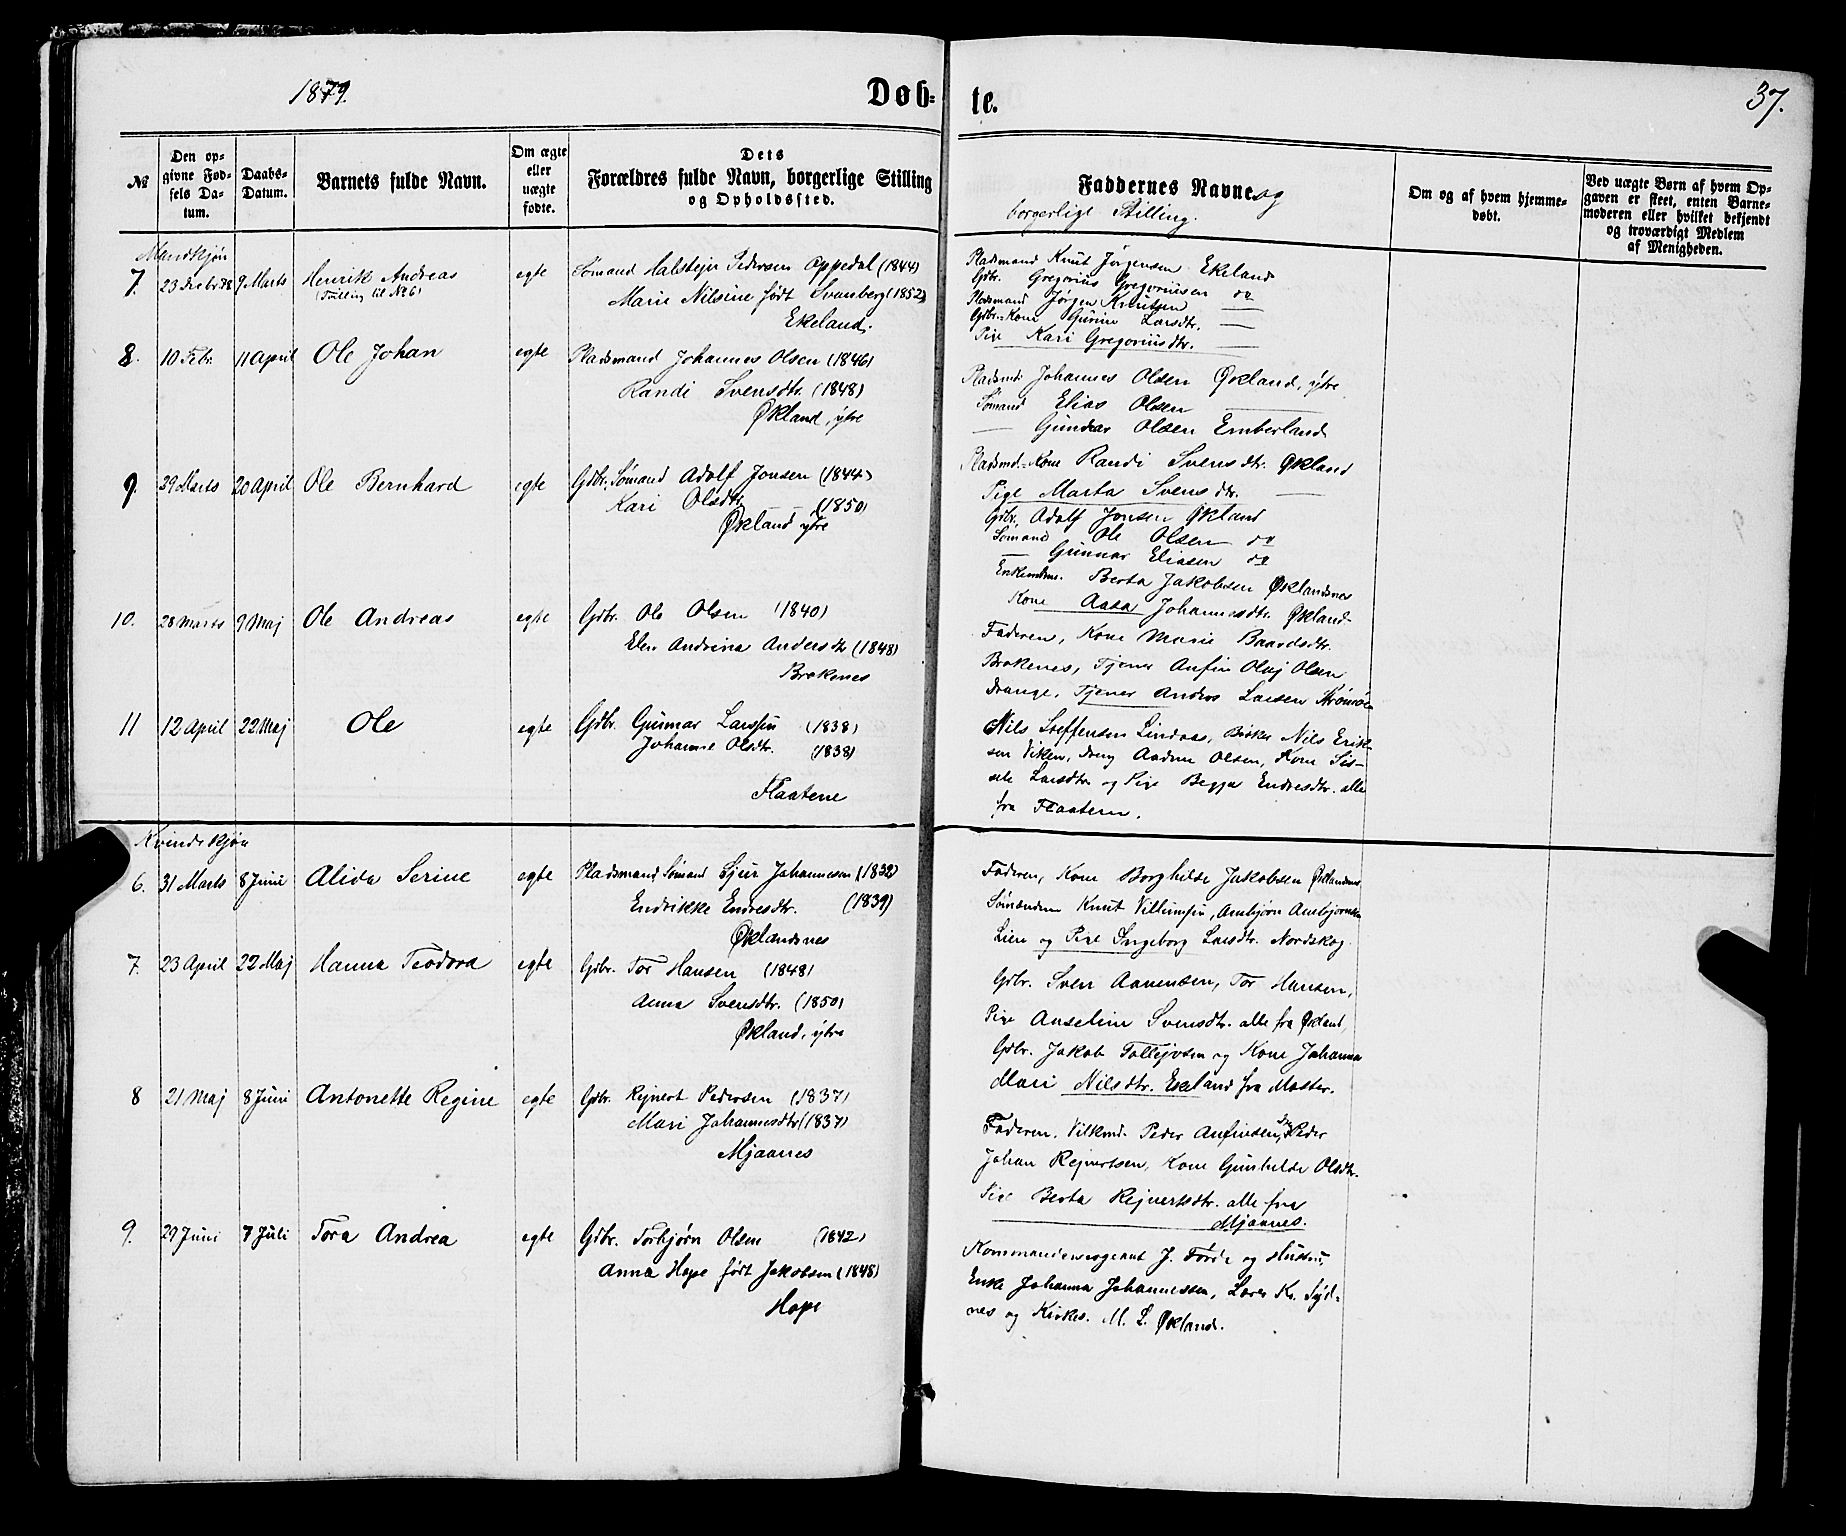 1879.
Døb-
te.
37.
№
Den op-
givne Fød-
sels Da-
tum.
Daabs-
Datum.
Barnets fulde Navn.
Om ægte
eller
uægte
fødte.
Dets
Forældres fulde Navn, borgerlige Stilling
og Opholdssted.
Faddernes Navne og
borgerlige Stilling.
Om og af hvem hjemme-
døbt.
Ved uægte Børn af hvem Op-
gaven er skeet, enten Barne-
moderen eller hvilket bekjendt
og troværdigt Medlem
af Menigheden.
Mandkjøn
7. 23 Decbr. 78 9 Marts Henrik Andreas egte Sømand Halstejn Pedersen Oppedal (1844)
(Tvilling til No 6)
Marie Nilsine født Svanberg (1852)
Ekeland.
Pladsmand Knut Jørgensen Ekeland
Gdbr. Gregorius Gregoriusen do
Pladsmand Jørgen Knutsen —
Gdbr.-Kone Gurine Larsdtr. —
Pige Kari Gregoriusdtr. —
8. 10 Febr. 11 April Ole Johan egte Pladsmand Johannes Olsen (1846)
Randi Svensdtr. (1848)
Økland, ytre
Pladsmd. Johannes Olsen Økland, ytre
Sømand Elias Olsen —
— Gunnar Olsen Emberland
Pladsmd.-Kone Randi Svensdtr. Økland
Pige Marta Svensdtr. —
9. 29 Marts 20 April Ole Bernhard egte Gdbr. Sømand Adolf Jonsen (1844)
Kari Olsdtr. (1850)
Økland ytre
Gdbr. Adolf Jonsen Økland
Sømand Ole Olsen do
— Gunnar Eliasen do
Berta Jakobsen Øklandsnes
Kone Aasa Johannesdtr. Økland
10. 28 Marts 9 Maj Ole Andreas egte Gdbr. Ole Olsen (1840)
Elen Andrina Andersdtr (1848)
Brekenes
Faderen, Kone Marie Baardsdtr.
Brekenes, Tjener Anfin Olaj Olsen
Drange, Tjener Anders Larsen
11 12 April 22 Maj Ole egte Gdbr. Gunnar Larssen (1838)
Johanne Olsdtr. (1838)
Flaatene
Nils Steffensen Lindaas, Nils Erik-
sen Viken, Dreng Aadne Olsen, Kone Sis-
sele Larsdtr og Pige Begga Endresdtr. alle
fra Flaatene.
Kvindekjøn
6. 31 Marts 8 Juni Alida Serine egte Pladsmand Sømand Sjur Johannesen (1832)
Endrikke Endresdtr. (1839)
Øklandsnes
Faderen, Kone Borghilde Jakobsen Øklandsnes
Sømændene Knut Villumsen, Ambjørn Ambjørnsen
Liere og Pige Ingeborg Larsdtr. Nordskog
7. 23 April 22 Maj Hanna Teodora egte Gdbr. Tor Hansen (1848)
Anna Svensdtr. (1850)
Økland, ytre
Gdbr. Sven Aamensen, Tor Hansen,
Pige Anseline Svensdtr. alle fra Økland,
Gdbr. Jakob Tollejvsen og Kone Johanna
Mari Nilsdtr. Ekeland fra Moster.
8 21 Maj 8 Juni Antonette Regine egte Gdbr. Rejnert Pedersen (1837)
Mari Johannesdtr (1837)
Mjaanes
Faderen. Vilkmd. Peder Anfinsen, Peder
Johan Rejnertsen, Kone Gunhilde Olsdtr.
Pige Berta Rejnertsdtr. alle fra
Mjaanes.
9. 29 Juni 7 Juli Tora Andrea egte Gdbr. Torbjørn Olsen (1842)
Anna Hope født Jakobsen (1848)
Hope
Kommandersergeant J. Førde og Hustru,
Enke Johanna Johannessen, Lærer Kr. Syd-
nes og Kirkes. M. L. Økland.